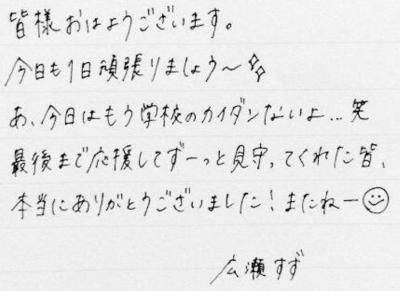 皆様おはようございます。
今日も1日頑張りましょう〜✨
あ、今日はもう学校のカイダンないよ...笑
最後まで応援してずーっと見守ってくれた皆、
本当にありがとうございました!またねー☺
広瀬すず